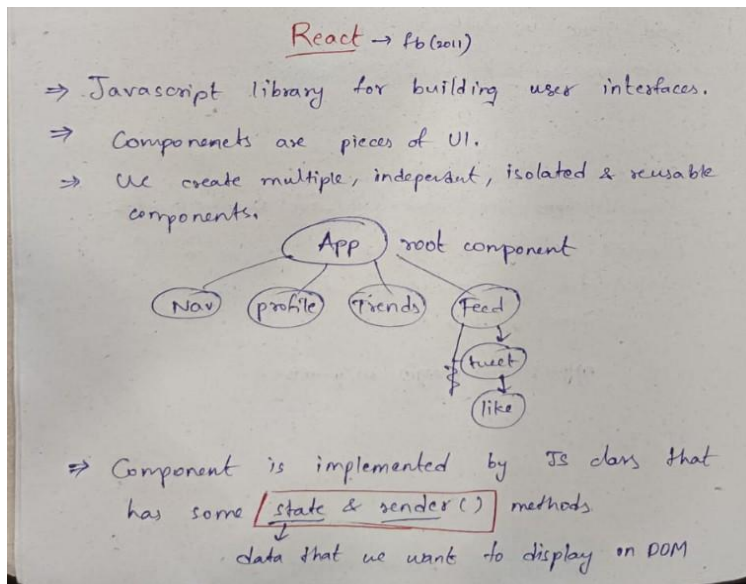 React → fb (2011)
⇒ Javascript library for building user interfaces.
⇒ Componenets are pieces of UI.
⇒ We create multiple, indepersant, isolated & reusable
components.
App root component
Nav profile Trends Feed
tweet
like
⇒ Component is implemented by JS class that
has some state & render() methods.
data that we want to display on DOM